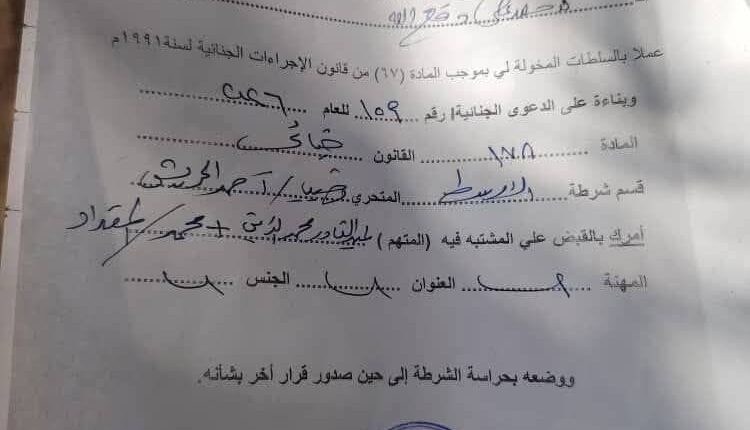 عملا بالسلطات المخولة لي بموجب المادة (٦٧) من قانون الإجراءات الجنائية لسنة ١٩٩١م
وبناءة على الدعوى الجنائية/ رقم ١٥٩ للعام
المادة ١٧٨ القانون جنائي
قسم شرطة الاوسط المتحري / احمد
أمرك بالقبض علي المشتبه فيه (المتهم) عبدالقادر محمد + محمد / المقداد
المهنة العنوان الجنس
ووضعه بحراسة الشرطة إلى حين صدور قرار أخر بشأنه.